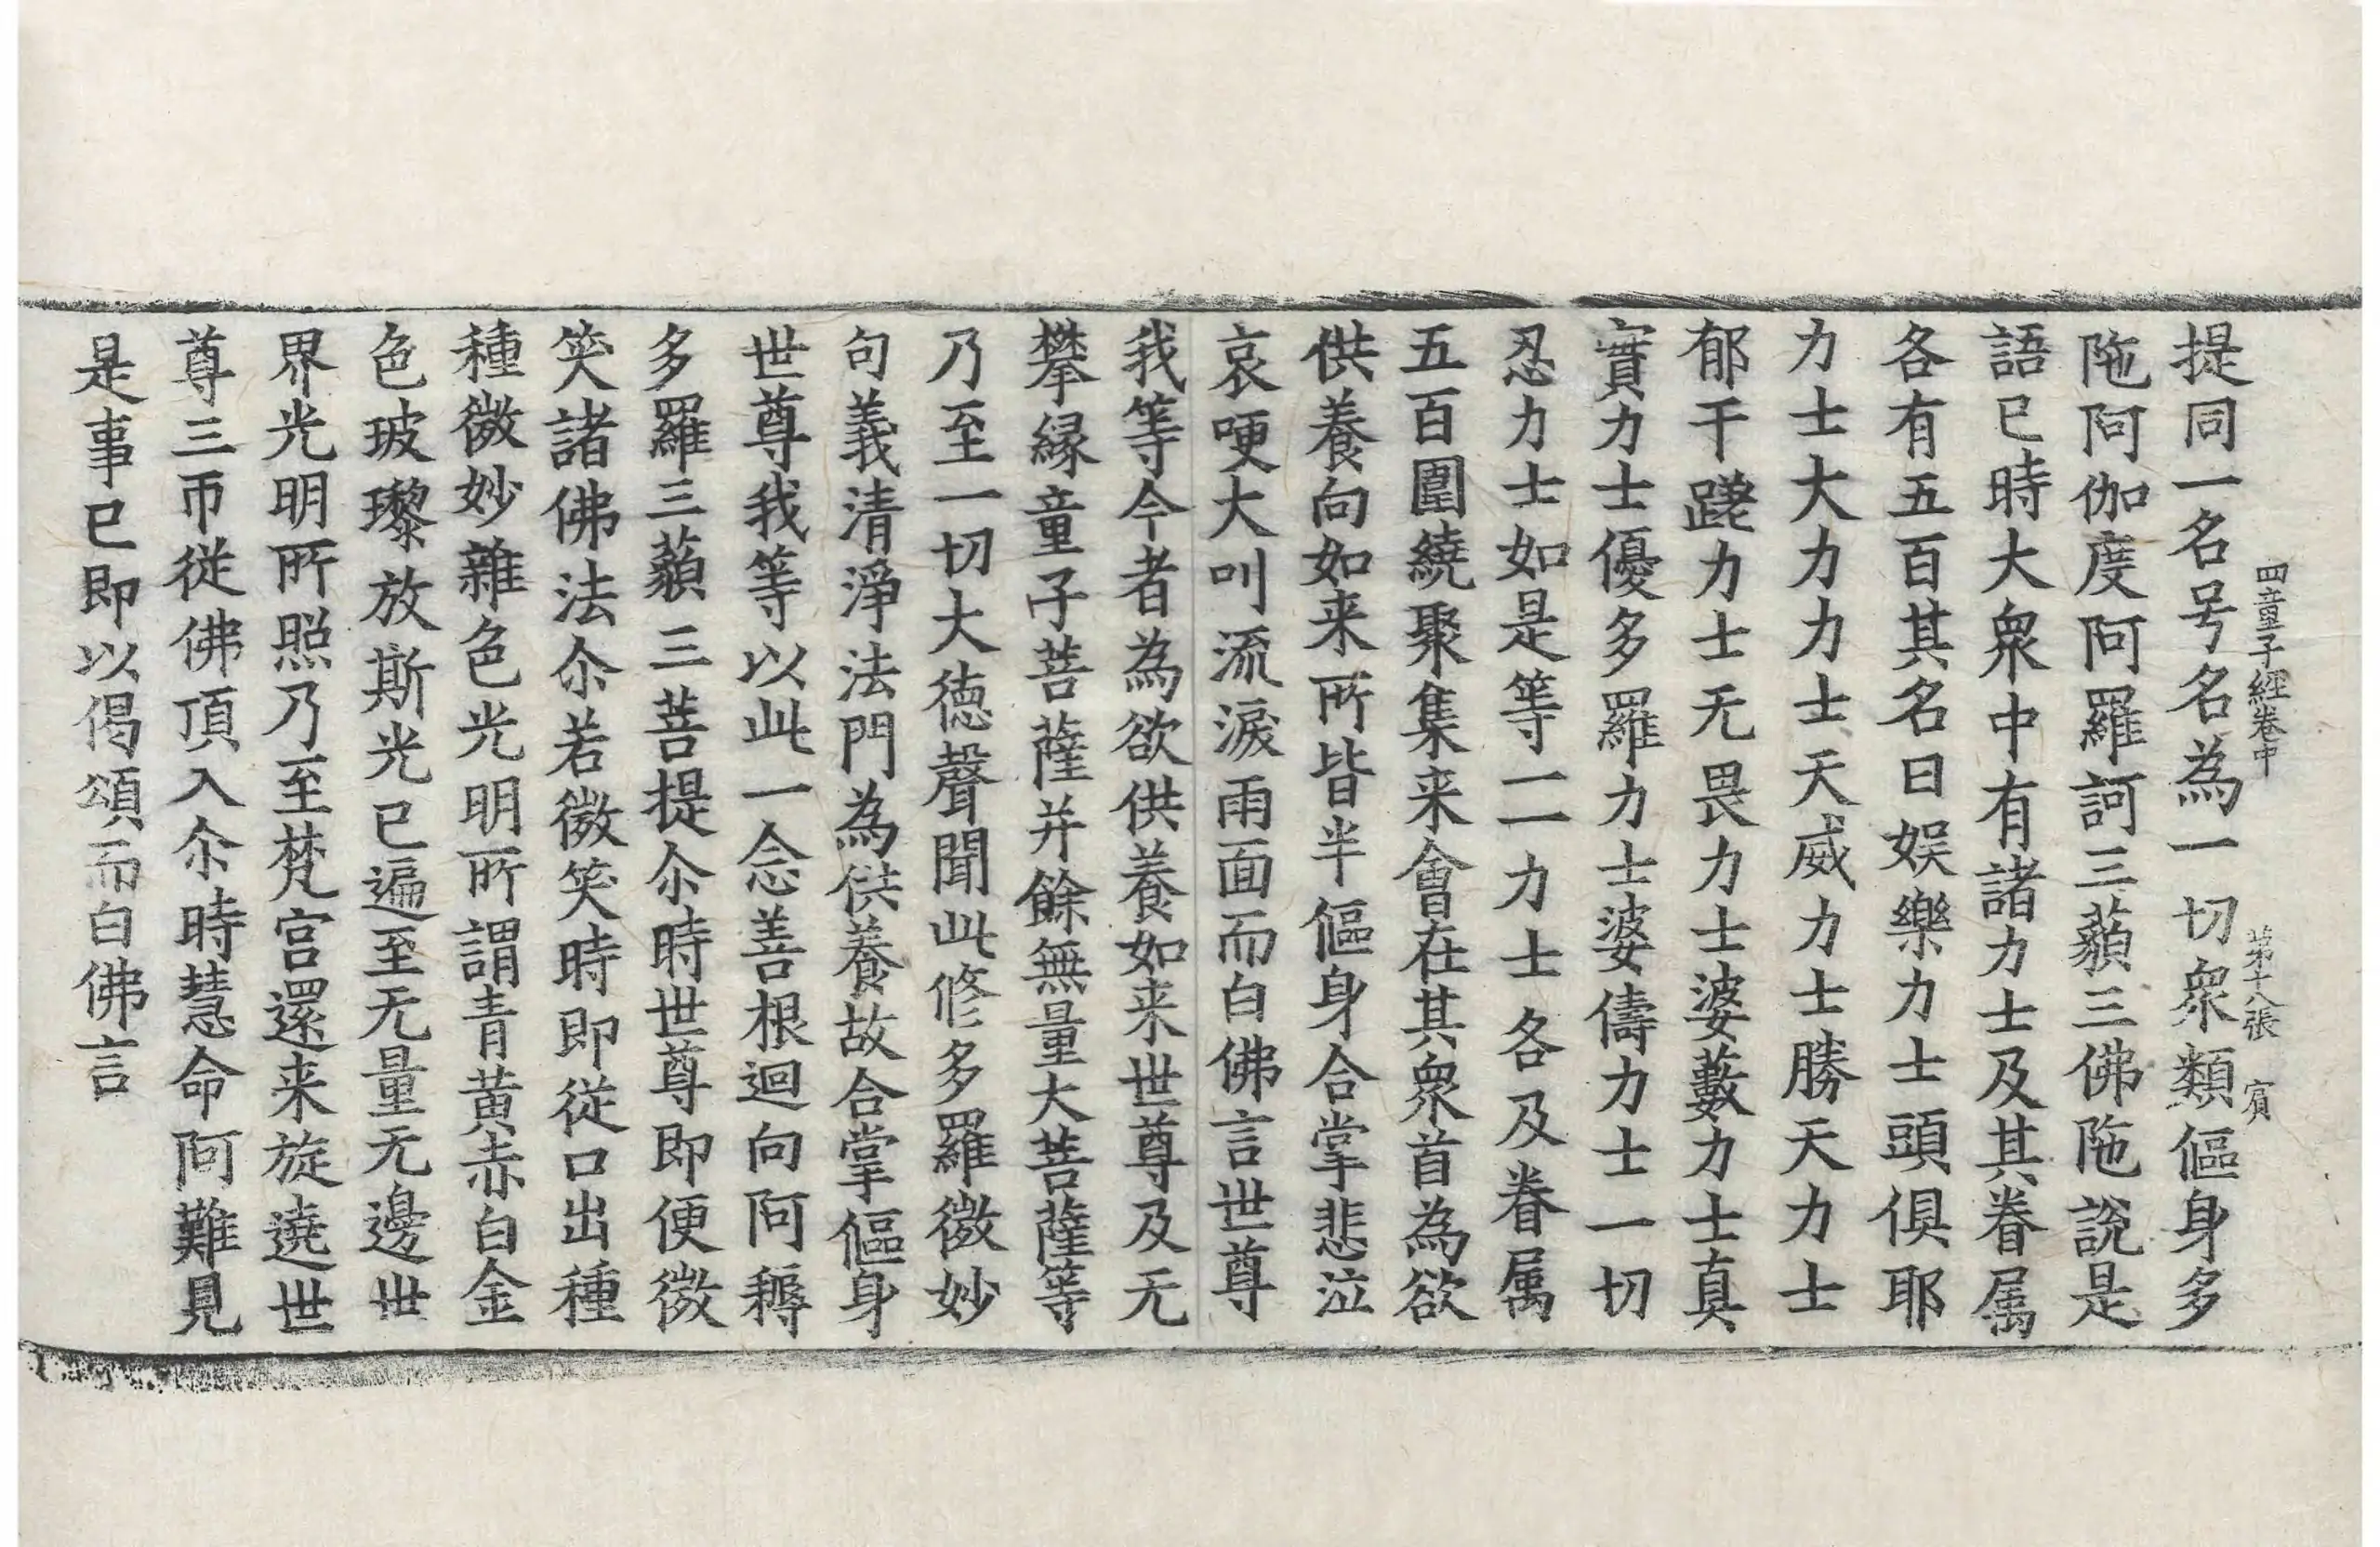 四童子經卷中 第十八張 賔
提同一名号名為一切衆類傴身多
陁阿伽度阿羅訶三藐三佛陁説是
語已時大衆中有諸力士及其眷属
各有五百其名曰娯樂力士頭倶耶
力士大力力士天威力士勝天力士
郁干蹉力士无畏力士婆藪力士真
實力士優多羅力士婆儔力士一切
忍力士如是等一一力士各及眷属
五百圍繞聚集来會在其衆首為欲
供養向如来所皆半傴身合掌悲泣
哀哽大叫流淚雨面而白佛言世尊
我等今者為欲供養如来世尊及无
攀縁童子菩薩并餘無量大菩薩等
乃至一切大徳聲聞此修多羅微妙
句義清淨法門為供養故合掌傴身
世尊我等以此一念善根迴向阿耨
多羅三藐三菩提尒時世尊即便微
笑諸佛法尒若微笑時即從口出種
種微妙雜色光明所謂青黄赤白金
色玻瓈放斯光已遍至无量无邊世
界光明所照乃至梵宫還来旋遶世
尊三帀從佛頂入尒時慧命阿難見
是事已即以偈頌而白佛言